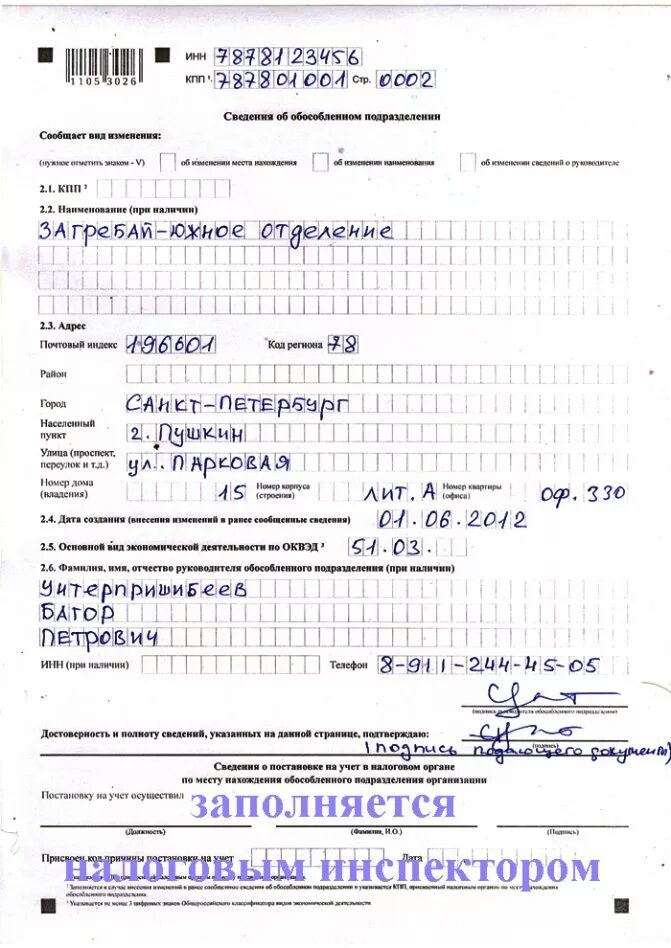 1105 3026
ИНН 7878123456
КПП ¹ 787801001 Стр. 0002
Сведения об обособленном подразделении
Сообщает вид изменения:
(нужное отметить знаком - V) об изменении места нахождения об изменении наименования об изменении сведений о руководителе
2.1. КПП ²
2.2. Наименование (при наличии)
ЗАгребАЙ-Южное отделение
2.3. Адрес
Почтовый индекс 196601 Код региона 78
Район
Город САНКТ-ПЕТЕРБУРГ
Населенный
пункт г. Пушкин
Улица (проспект,
переулок и т.д.) ул. ПАРКОВАЯ
Номер дома
(владения) 15 Номер корпуса
(строения) ЛИТ. А Номер квартиры
(офиса) оф. 330
2.4. Дата создания (внесения изменений в ранее сообщенные сведения) 01.06.2012
2.5. Основной вид экономической деятельности по ОКВЭД ³ 51.03.
2.6. Фамилия, имя, отчество руководителя обособленного подразделения (при наличии)
Унтерпришибеев
БАГОР
ПЕТРОВИЧ
ИНН (при наличии) Телефон 8-911-244-45-05
(подпись руководителя обособленного подразделения)
Достоверность и полноту сведений, указанных на данной странице, подтверждаю:
(подпись)
(подпись подающего документ)
Сведения о постановке на учет в налоговом органе
по месту нахождения обособленного подразделения организации
Постановку на учет осуществил
заполняется
(Должность) (Фамилия, И.О.) (Подпись)
Присвоен код причины постановки на учет Дата
налоговым инспектором
² Заполняется в случае внесения изменений в ранее сообщенные сведения об обособленном подразделении и указывается КПП, присвоенный налоговым органом по месту нахождения
обособленного подразделения.
³ Указывается не менее 3 цифровых знаков Общероссийского классификатора видов экономической деятельности.